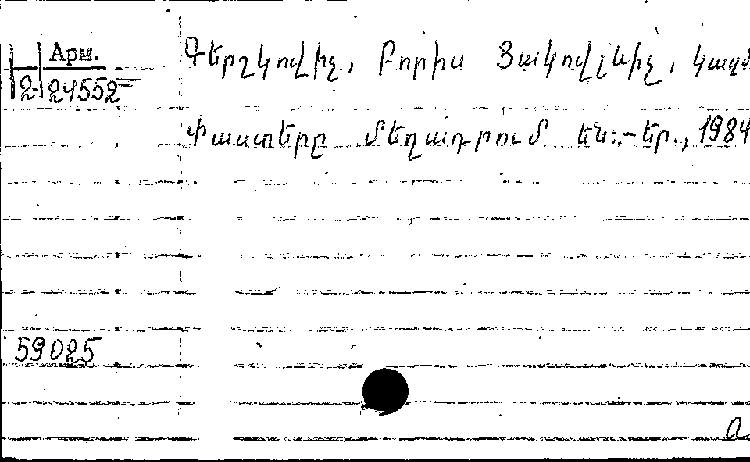 Арм.
2-24552
Գերշկովիչ, Բորիս Յակովլևիչ, կազմ
Փաստերը մեղադրում են:.-Եր., 1984
59025
а.